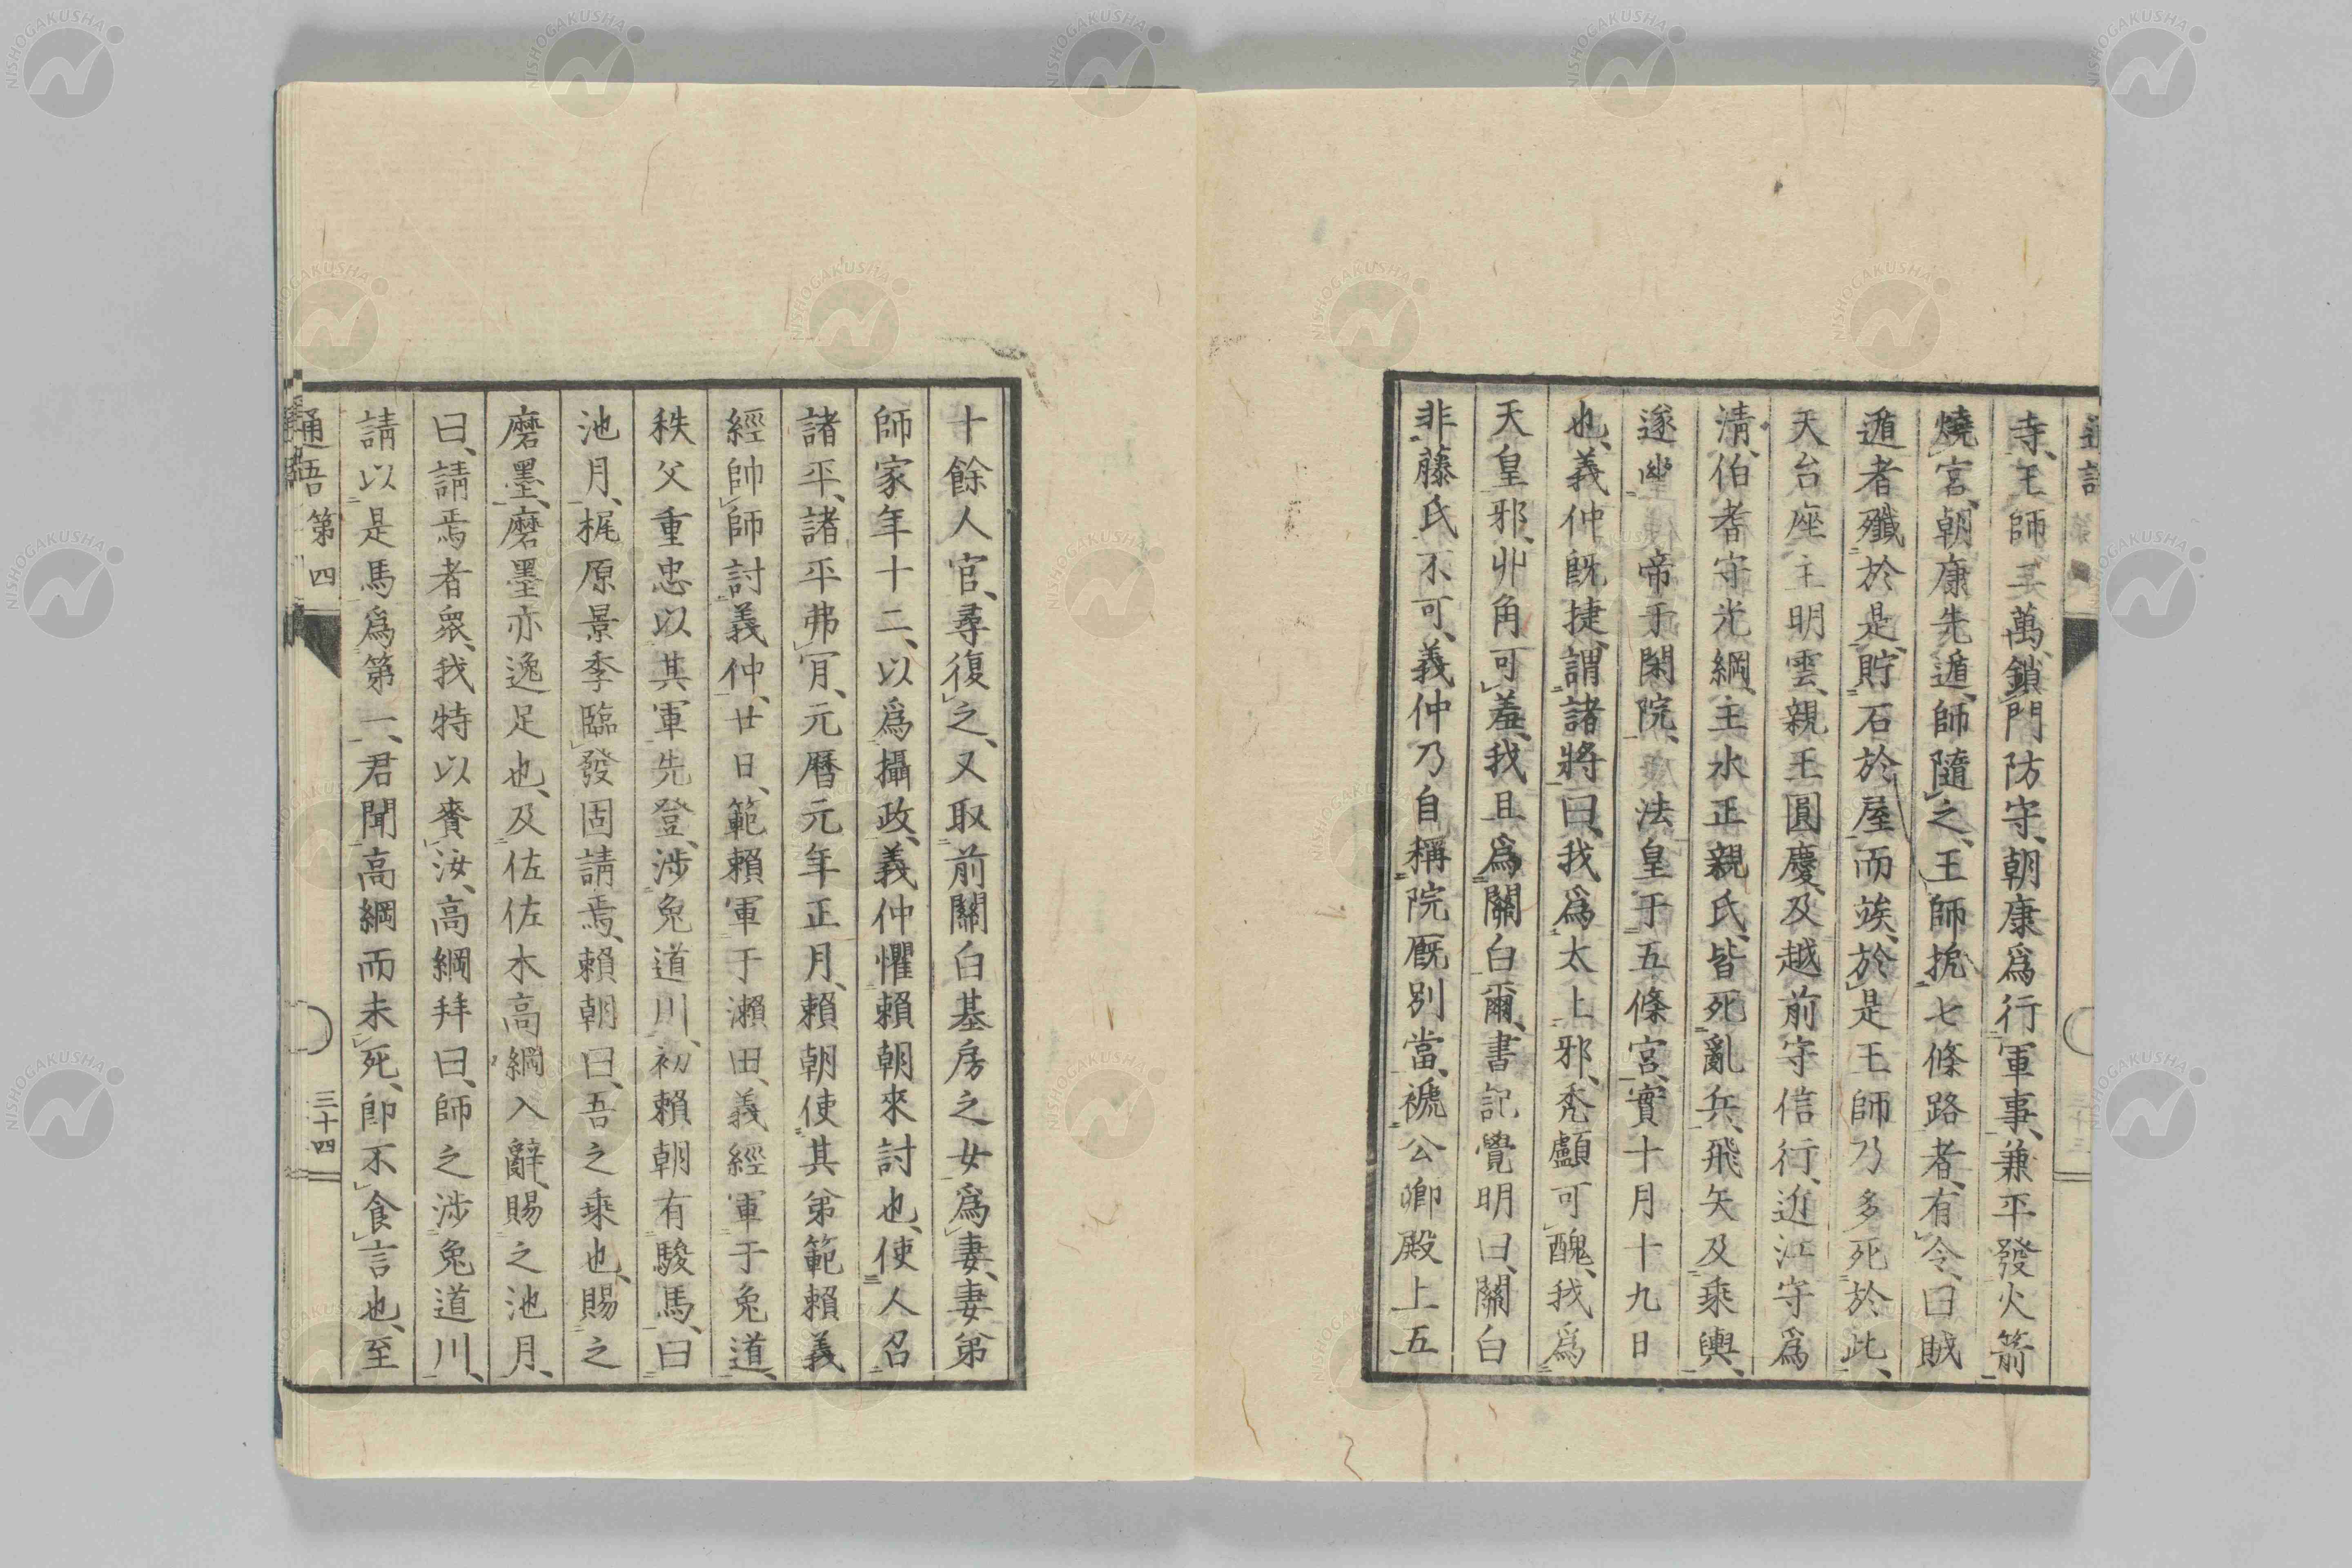 寺、王師三萬、鎖門防守、朝康爲行軍事、兼平發火箭
燒宮、朝康先遁、師隨之、王師扼七條路者、有令、曰賊
遁者殲於是、貯石於屋而竢、於是王師乃多死於此、
天台座主明雲、親王圓慶、及越前守信行、近江守爲
淸、伯耆守光綱、主水正親氏、皆死亂兵、飛矢及乘輿、
遂幽帝于閑院、法皇于五條宮、實十月十九日
也、義仲旣捷、謂諸將曰、我爲太上邪、禿顱可醜、我爲
天皇邪、丱角可羞、我且爲關白爾、書記覺明曰、關白
非藤氏不可、義仲乃自稱院廐別當、褫公卿殿上五
十餘人官、尋復之、又取前關白基房之女爲妻、妻弟
師家年十二、以爲攝政、義仲懼賴朝來討也、使人召
諸平、諸平弗肎、元曆元年正月、賴朝使其弟範賴義
經帥師討義仲、廿日、範賴軍于瀬田、義經軍于兔道、
秩父重忠以其軍先登、涉兔道川、初賴朝有駿馬、曰
池月、梶原景季臨發固請焉、賴朝曰、吾之乘也、賜之
磨墨、磨墨亦逸足也、及佐佐木高綱入辭、賜之池月、
曰、請焉者衆、我特以賚汝、高綱拜曰、師之涉兔道川、
請以是馬爲第一、君聞高綱而未死、卽不食言也、至
通語 第四
三十四